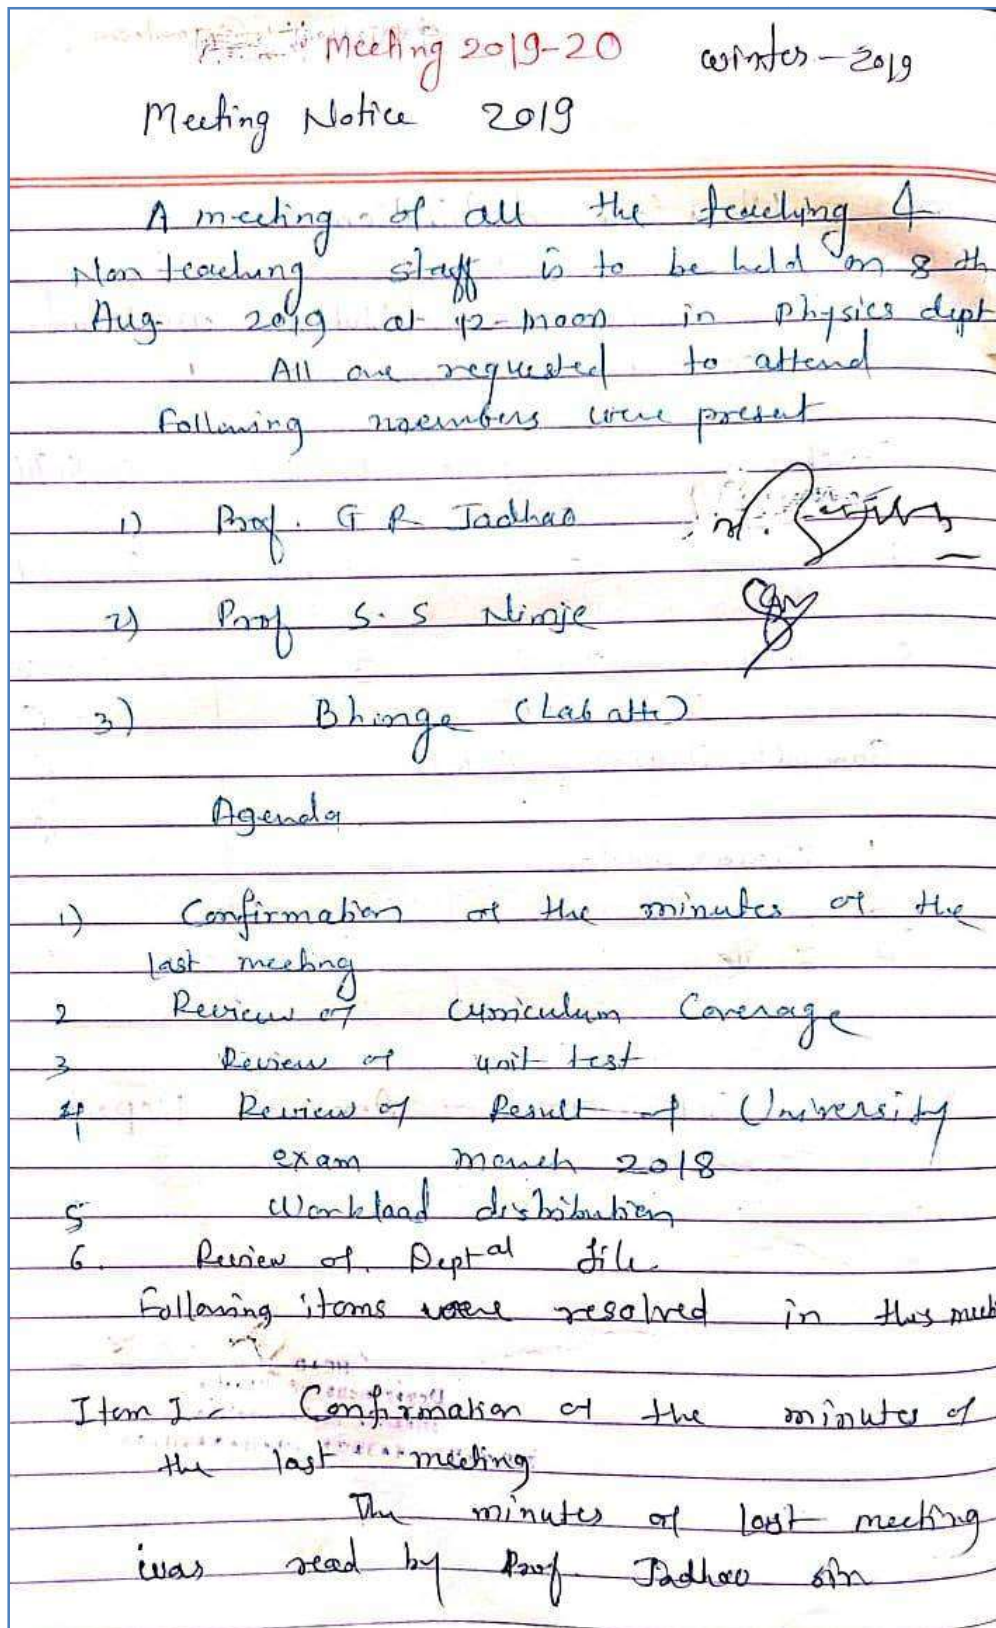 Meeting 2019-20 winter - 2019
Meeting Notice 2019
A meeting of all the teaching &
Non teaching staff is to be held on 8 th
Aug. 2019 at 12-noon in physics dept
All are requested to attend
Following members were present
1) Prof. G R Jadhao
2) Prof S. S Nimje
3) Bhinge (Lab att)
Agenda
1) Confirmation of the minutes of the
last meeting
2 Review of Curriculum Coverage
3 Review of unit test
4 Review of Result of University
exam march 2018
5 Workload distribution
6. Review of Deptal file.
Following items were resolved in this meet
Item I - Confirmation of the minutes of
the last meeting
The minutes of last meeting
was read by Prof Jadhao sir